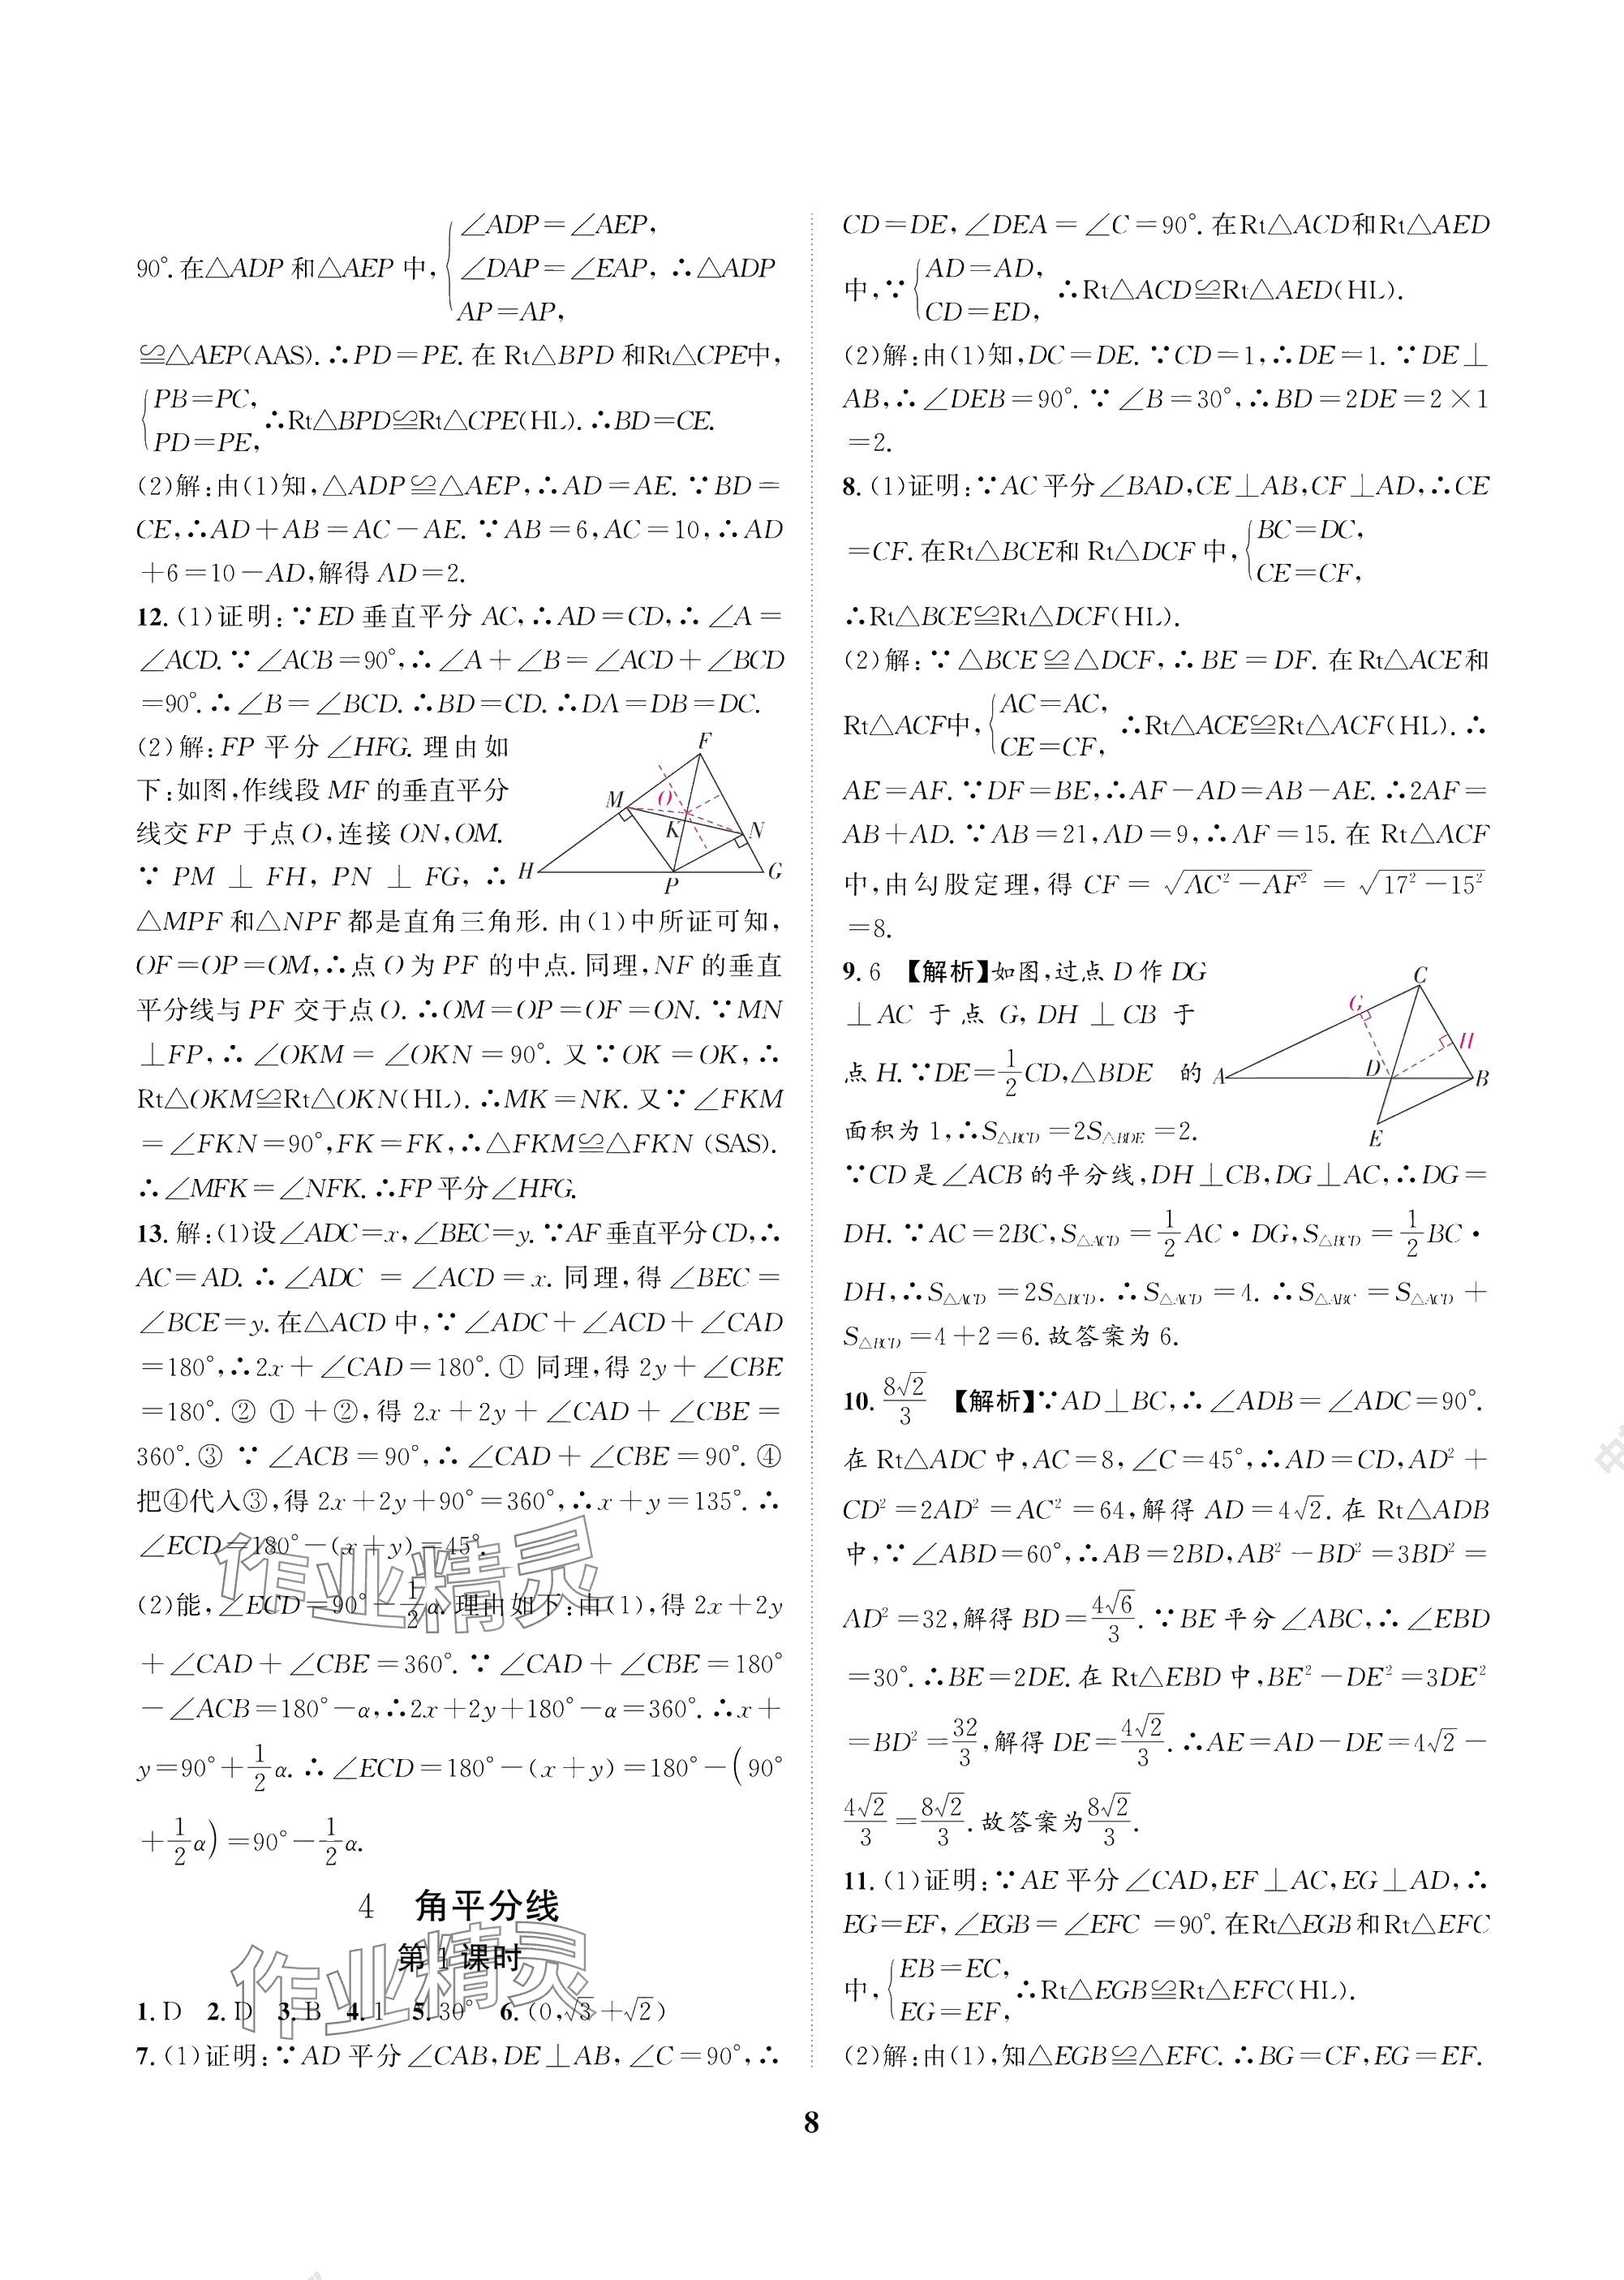 90°.在△ADP 和△AEP 中,{∠ADP=∠AEP, ∠DAP=∠EAP, AP=AP, ∴△ADP
≌△AEP(AAS).∴PD=PE.在 Rt△BPD 和Rt△CPE中,
{PB=PC, PD=PE, ∴Rt△BPD≌Rt△CPE(HL).∴BD=CE.
(2)解:由(1)知,△ADP≌△AEP,∴AD=AE.∵BD=
CE,∴AD+AB=AC-AE.∵AB=6,AC=10,∴AD
+6=10-AD,解得 AD=2.
12.(1)证明:∵ED 垂直平分 AC,∴AD=CD,∴∠A=
∠ACD.∵∠ACB=90°,∴∠A+∠B=∠ACD+∠BCD
=90°.∴∠B=∠BCD.∴BD=CD.∴DA=DB=DC.
(2)解:FP 平分∠HFG.理由如
下:如图,作线段 MF 的垂直平分
线交 FP 于点O,连接 ON,OM.
∵ PM ⊥ FH, PN ⊥ FG, ∴
F
M
O
K
N
H
P
G
△MPF 和△NPF 都是直角三角形.由(1)中所证可知,
OF=OP=OM,∴点 O 为 PF 的中点.同理,NF 的垂直
平分线与 PF 交于点O.∴OM=OP=OF=ON.∵MN
⊥FP,∴∠OKM=∠OKN=90°.又∵OK=OK,∴
Rt△OKM≌Rt△OKN(HL).∴MK=NK.又∵∠FKM
=∠FKN=90°,FK=FK,∴△FKM≌△FKN (SAS).
∴∠MFK=∠NFK.∴FP平分∠HFG.
13.解:(1)设∠ADC=x,∠BEC=y.∵AF垂直平分CD,∴
AC=AD.∴∠ADC =∠ACD=x.同理,得∠BEC=
∠BCE=y.在△ACD 中,∵∠ADC+∠ACD+∠CAD
=180°,∴2x+∠CAD=180°.① 同理,得 2y+∠CBE
=180°.② ①+②,得 2x+2y+∠CAD+∠CBE=
360°.③ ∵∠ACB=90°,∴∠CAD+∠CBE=90°.④
把④代入③,得 2x+2y+90°=360°,∴x+y=135°.∴
∠ECD=180°-(x+y)=45°.
(2)能,∠ECD=90°-1/2α.理由如下:由(1),得 2x+2y
+∠CAD+∠CBE=360°.∵∠CAD+∠CBE=180°
-∠ACB=180°-α,∴2x+2y+180°-α=360°.∴x+
y=90°+1/2α.∴∠ECD=180°-(x+y)=180°-(90°
+1/2α)=90°-1/2α.
4 角平分线
第 1 课时
1. D 2. D 3. B 4. 1 5. 30° 6. (0,√3+√2)
7.(1)证明:∵AD 平分∠CAB,DE⊥AB,∠C=90°,∴
CD=DE,∠DEA=∠C=90°.在Rt△ACD和Rt△AED
中,∵{AD=AD, CD=ED, ∴Rt△ACD≌Rt△AED(HL).
(2)解:由(1)知,DC=DE.∵CD=1,∴DE=1.∵DE⊥
AB,∴∠DEB=90°.∵∠B=30°,∴BD=2DE=2×1
=2.
8.(1)证明:∵AC 平分∠BAD,CE⊥AB,CF⊥AD,∴CE
=CF.在Rt△BCE和 Rt△DCF 中,{BC=DC, CE=CF,
∴Rt△BCE≌Rt△DCF(HL).
(2)解:∵△BCE≌△DCF,∴BE=DF.在Rt△ACE和
Rt△ACF中,{AC=AC, CE=CF, ∴Rt△ACE≌Rt△ACF(HL).∴
AE=AF.∵DF=BE,∴AF-AD=AB-AE.∴2AF=
AB+AD.∵AB=21,AD=9,∴AF=15.在 Rt△ACF
中,由勾股定理,得 CF=√(AC²-AF²)=√(17²-15²)
=8.
9. 6 【解析】如图,过点 D 作 DG
⊥AC 于点 G, DH⊥CB 于
点 H.∵DE=1/2CD,△BDE 的
面积为 1,∴S△BCD=2S△BDE=2.
C
G
H
A
D
B
E
∵CD 是∠ACB 的平分线,DH⊥CB,DG⊥AC,∴DG=
DH.∵AC=2BC,S△ACD=1/2AC·DG,S△BCD=1/2BC·
DH,∴S△ACD=2S△BCD.∴S△ACD=4.∴S△ABC=S△ACD+
S△BCD=4+2=6.故答案为 6.
10. 8√2/3 【解析】∵AD⊥BC,∴∠ADB=∠ADC=90°.
在 Rt△ADC 中,AC=8,∠C=45°,∴AD=CD,AD²+
CD²=2AD²=AC²=64,解得 AD=4√2.在 Rt△ADB
中,∵∠ABD=60°,∴AB=2BD,AB²-BD²=3BD²=
AD²=32,解得 BD=4√6/3.∵BE 平分∠ABC,∴∠EBD
=30°.∴BE=2DE.在 Rt△EBD 中,BE²-DE²=3DE²
=BD²=32/3,解得 DE=4√2/3.∴AE=AD-DE=4√2-
4√2/3=8√2/3.故答案为8√2/3.
11.(1)证明:∵AE 平分∠CAD,EF⊥AC,EG⊥AD,∴
EG=EF,∠EGB=∠EFC =90°.在Rt△EGB和Rt△EFC
中,{EB=EC, EG=EF, ∴Rt△EGB≌Rt△EFC(HL).
(2)解:由(1),知△EGB≌△EFC.∴BG=CF,EG=EF.
8
作业精灵
作业精灵